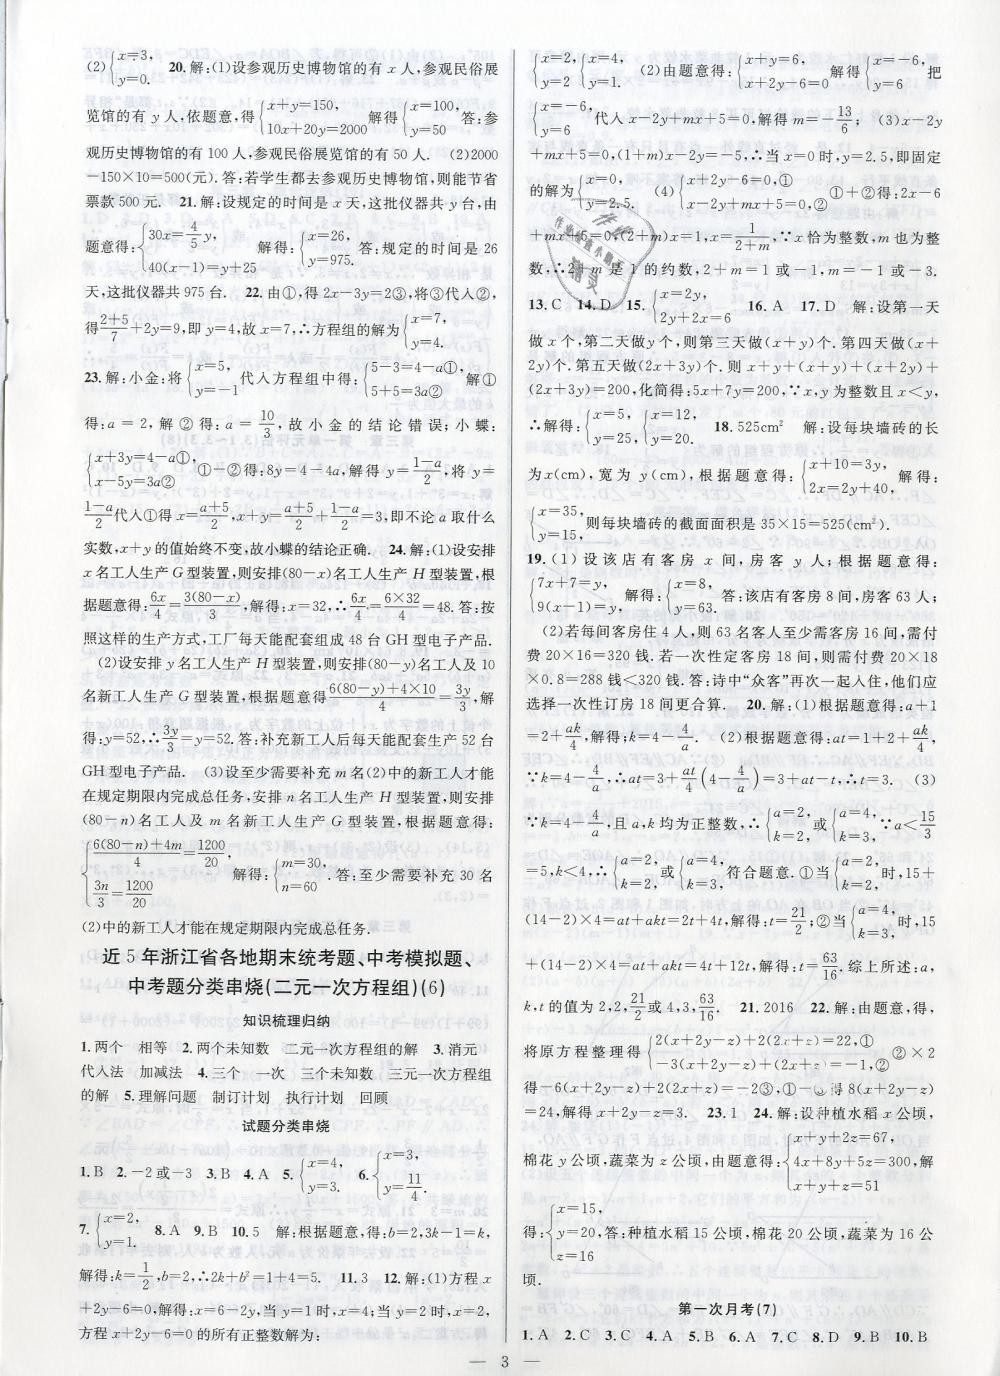 (2){x=3, y=0. 20.解:(1)设参观历史博物馆的有 x 人,参观民俗展
览馆的有 y 人,依题意,得{x+y=150, 10x+20y=2000 解得{x=100, y=50 答:参
观历史博物馆的有 100 人,参观民俗展览馆的有 50 人. (2)2000
-150×10=500(元).答:若学生都去参观历史博物馆,则能节省
票款 500 元. 21.解:设规定的时间是 x 天,这批仪器共 y 台,由
题意得:{30x=4/5 y, 40(x-1)=y+25 解得:{x=26, y=975. 答:规定的时间是 26
天,这批仪器共 975 台. 22.由①,得 2x-3y=2③,将③代入②,
得(2+5)/7+2y=9,即 y=4,故 x=7,∴方程组的解为{x=7, y=4.
23.解:小金:将{x=5, y=-1 代入方程组中得:{5-3=4-a①, 5+5=3a② 解①
得:a=2,解②得:a=10/3,故小金的结论错误;小蝶:
{x+3y=4-a①, x-5y=3a② ①-②得:8y=4-4a,解得 y=(1-a)/2,将 y=
(1-a)/2代入①得 x=(a+5)/2,x+y=(a+5)/2+(1-a)/2=3,即不论 a 取什么
实数,x+y 的值始终不变,故小蝶的结论正确. 24.解:(1)设安排
x 名工人生产 G 型装置,则安排(80-x)名工人生产 H 型装置,根
据题意得:6x/4=3(80-x)/3,解得:x=32,∴6x/4=(6×32)/4=48.答:按
照这样的生产方式,工厂每天能配套组成 48 台 GH 型电子产品.
(2)设安排 y 名工人生产 H 型装置,则安排(80-y)名工人及 10
名新工人生产 G 型装置,根据题意得(6(80-y)+4×10)/4=3y/3,解
得:y=52,∴3y/3=y=52.答:补充新工人后每天能配套生产 52 台
GH 型电子产品. (3)设至少需要补充 m 名(2)中的新工人才能
在规定期限内完成总任务,安排 n 名工人生产 H 型装置,则安排
(80-n)名工人及 m 名新工人生产 G 型装置,根据题意得:
{(6(80-n)+4m)/4=1200/20, 3n/3=1200/20 解得:{m=30, n=60 .答:至少需要补充 30 名
(2)中的新工人才能在规定期限内完成总任务.
近 5 年浙江省各地期末统考题、中考模拟题、
中考题分类串烧(二元一次方程组)(6)
知识梳理归纳
1.两个 相等 2.两个未知数 二元一次方程组的解 3.消元
代入法 加减法 4.三个 一次 三个未知数 三元一次方程组
的解 5.理解问题 制订计划 执行计划 回顾
试题分类串烧
1.B 2.-2或-3 3.B 4.A 5.{x=4, y=3. 6.{x=3, y=11/4.
7.{x=2, y=1. 8.A 9.B 10.5 解:根据题意,得:b=2,3k-1=k,
解得:k=1/2,b=2,∴2k+b²=1+4=5. 11.3 12.解:(1)方程 x
+2y-6=0,解得:x=6-2y,当 y=1 时,x=4;当 y=2 时,x=2,
方程 x+2y-6=0 的所有正整数解为:
{x=2, y=2 {x=4, y=1. (2)由题意得:{x+y=6, x+2y-6=0 解得{x=-6, y=6 把
{x=-6, y=6 代入 x-2y+mx+5=0,解得 m=-13/6; (3)x-2y
+mx+5=0,(1+m)x-2y=-5,∴当 x=0 时,y=2.5,即固定
的解为{x=0, y=2.5. (4){x+2y-6=0,① x-2y+mx+5=0,② ①+②得:2x-6
+mx+5=0,(2+m)x=1,x=1/(2+m),∵x 恰为整数,m 也为整
数,∴2+m 是 1 的约数,2+m=1 或-1,m=-1 或-3.
13.C 14.D 15.{x=2y, 2y+2x=6 16.A 17.D 解:设第一天
做 x 个,第二天做 y 个,则第三天做(x+y)个.第四天做(x+
2y)个.第五天做(2x+3y)个.则 x+y+(x+y)+(x+2y)+
(2x+3y)=200,化简得:5x+7y=200,∵x,y 为整数且 x<y,
∴解得:{x=5, y=25, {x=12, y=20. 18.525cm² 解:设每块墙砖的长
为 x(cm),宽为 y(cm),根据题意得:{x+10=3y, 2x=2y+40, 解得:
{x=35, y=15, 则每块墙砖的截面面积是 35×15=525(cm²).
19.(1)设该店有客房 x 间,房客 y 人;根据题意得:
{7x+7=y, 9(x-1)=y, 解得:{x=8, y=63. 答:该店有客房 8 间,房客 63 人;
(2)若每间客房住 4 人,则 63 名客人至少需客房 16 间,需付
费 20×16=320 钱.若一次性定客房 18 间,则需付费 20×18
×0.8=288 钱<320 钱.答:诗中“众客”再次一起入住,他们应
选择一次性订房 18 间更合算. 20.解:(1)根据题意得:a+1
=2+ak/4,解得;k=4-4/a. (2)根据题意得:at=1+2+ak/4,
∵k=4-4/a,∴at=3+at/4(4-4/a)=3+at-t,∴t=3. (3)
∵k=4-4/a,且 a,k 均为正整数,∴{a=2, k=2, 或{a=4, k=3, ∵a<15/3
=5,k<4,∴{a=2, k=2, 或{a=4, k=3, 符合题意.①当{a=2, k=2, 时,15+
(14-2)×4=at+akt=2t+4t,解得:t=21/2;②当{a=4, k=3, 时,15
+(14-2)×4=at+akt=4t+12t,解得:t=63/16.综上所述:a,
k,t 的值为 2,2,21/2或 4,3,63/16. 21.2016 22.解:由题意,得,
将原方程整理得{2(x+2y-z)+2(2x+z)=22,① -3(x+2y-z)+(2x+z)=-1,② ②×2
得-6(x+2y-z)+2(2x+z)=-2③,①-③得 8(x+2y-z)
=24,解得 x+2y-z=3. 23.1 24.解:设种植水稻 x 公顷,
棉花 y 公顷,蔬菜为 z 公顷,由题意得:{x+y+z=67, 4x+8y+5z=300, x+y+z=51 解
得:{x=15, y=20, z=16 答:种植水稻 15 公顷,棉花 20 公顷,蔬菜为 16 公
顷.
第一次月考(7)
1.A 2.C 3.C 4.A 5.B 6.A 7.C 8.D 9.B 10.B
— 3 —